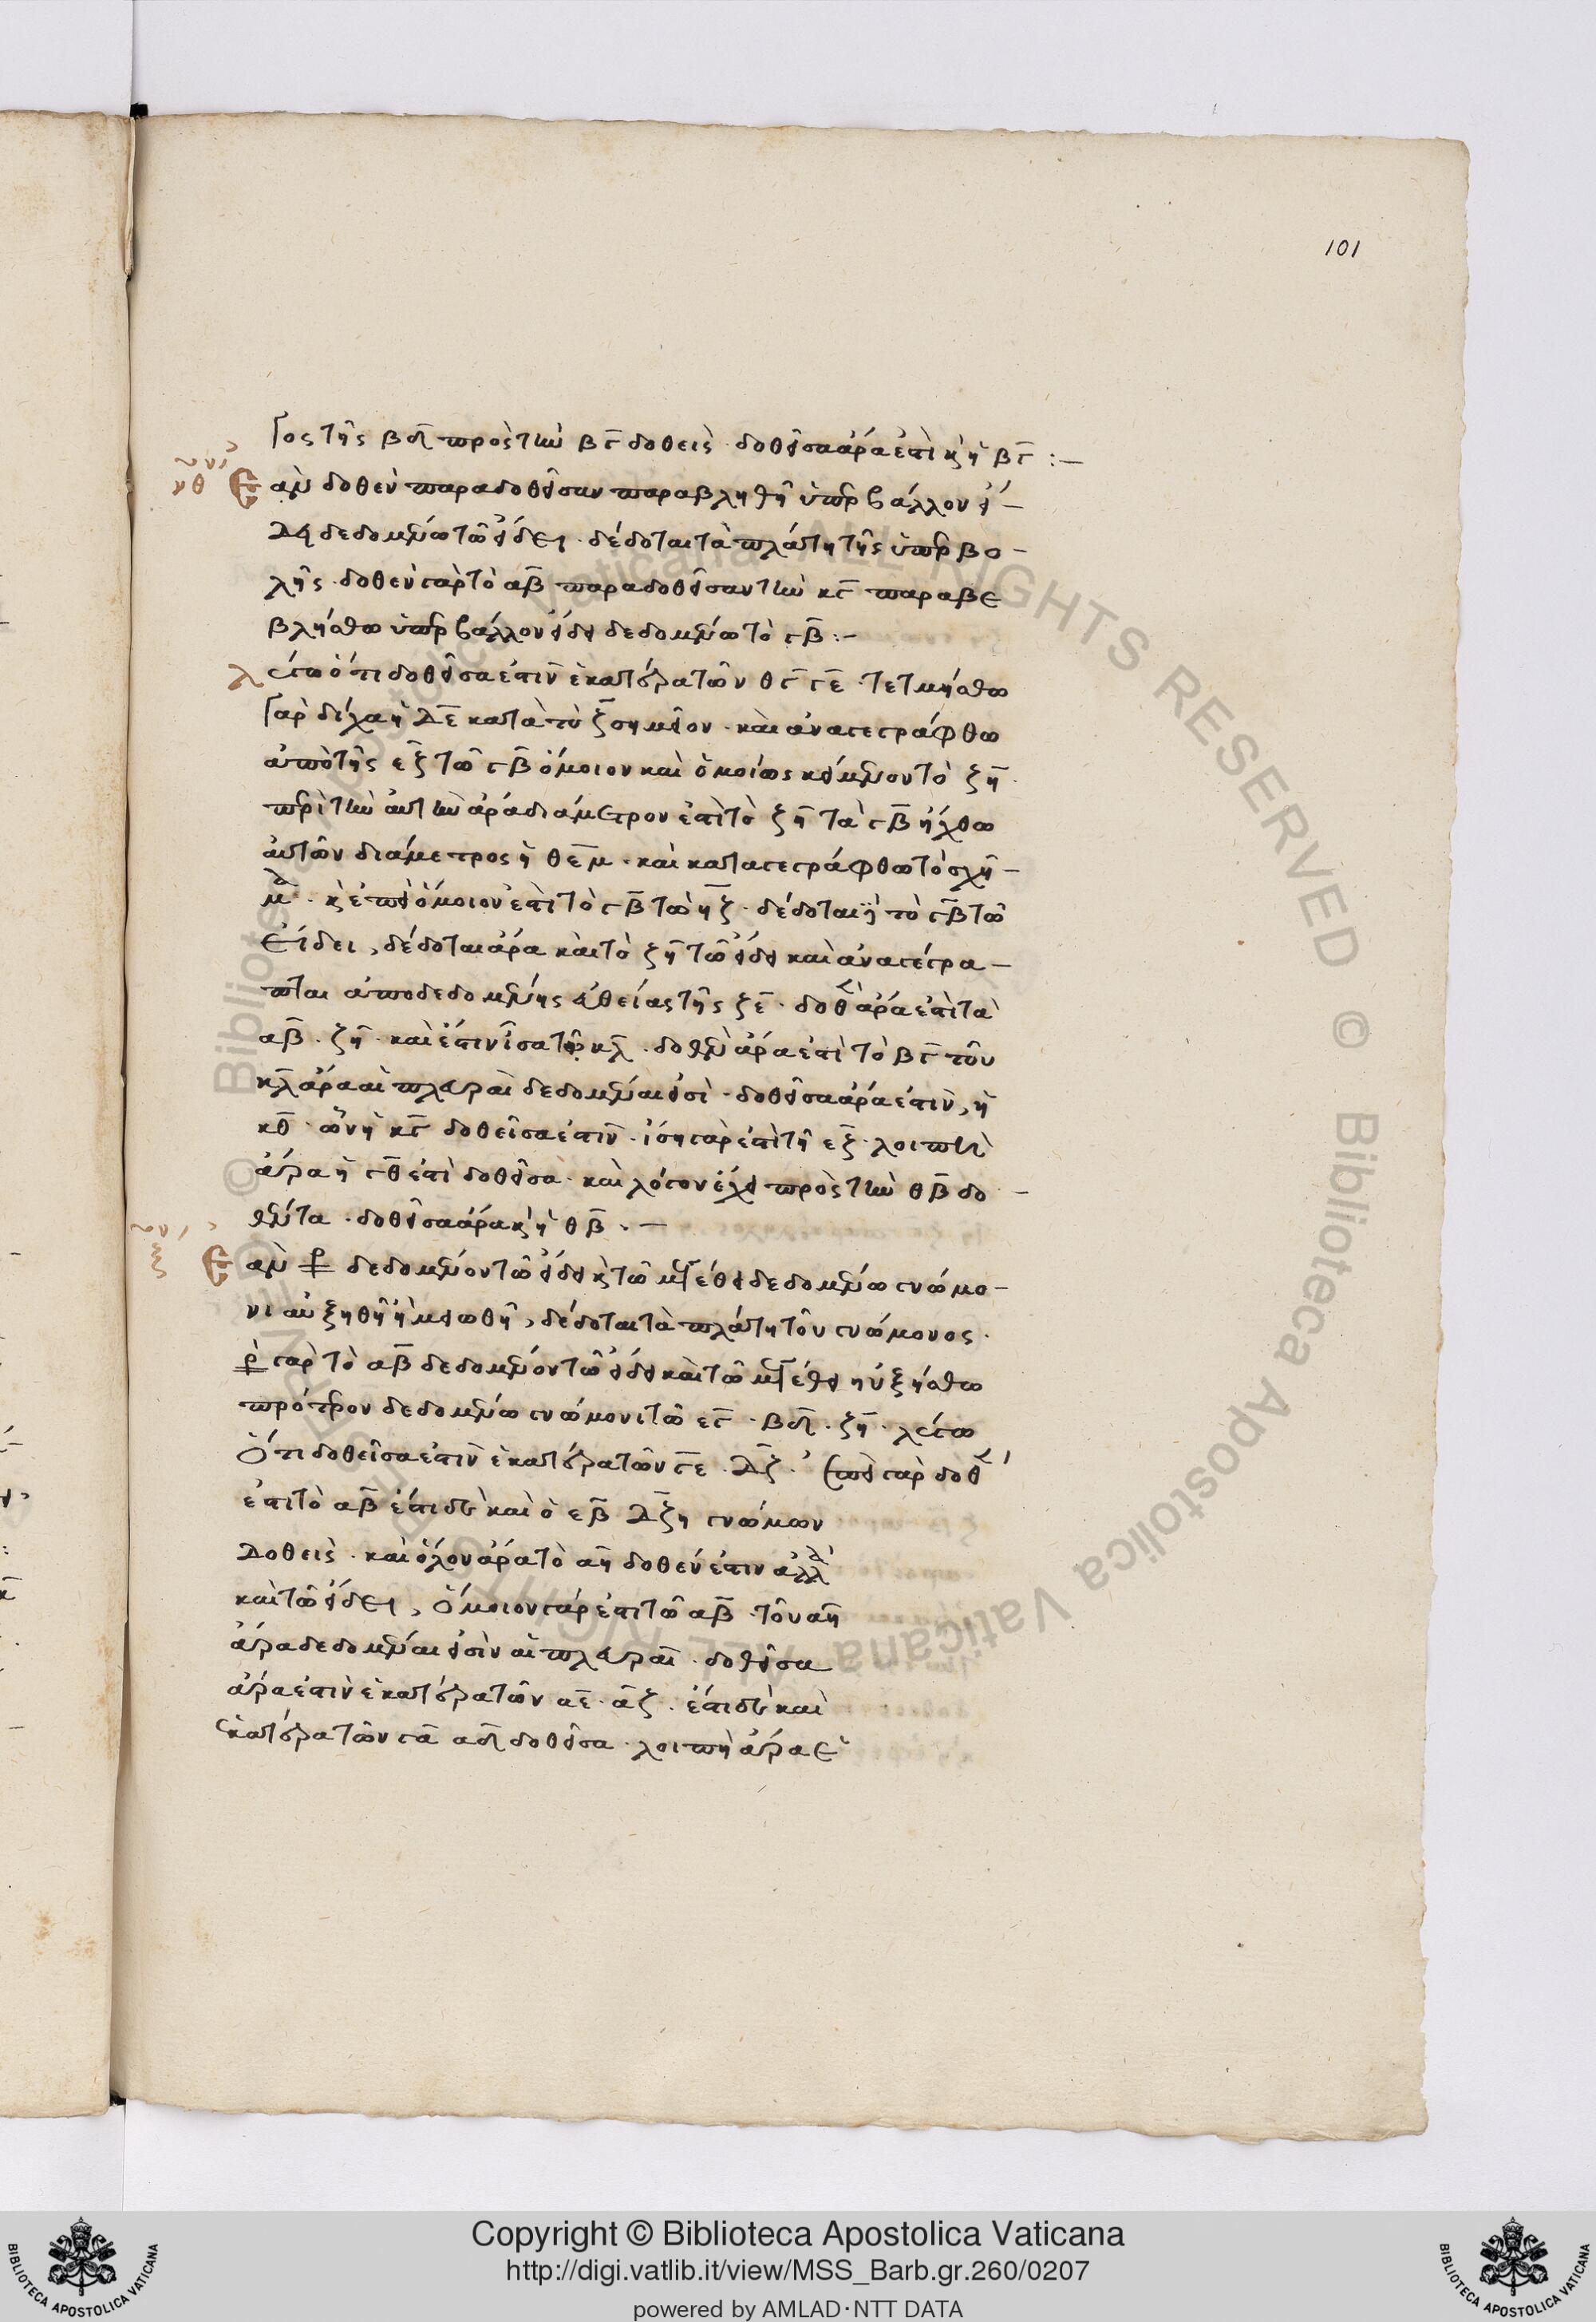 101
γος τῆς βδ πρὸς τὴν βγ δοθεὶς · δοθεῖσα ἄρα ἐστὶ κ(αὶ) ἡ βγ :—
νθ Ἐὰν δοθὲν παρὰ δοθεῖσαν παραβληθῆ ὑπερβάλλον εἴ—
δει δεδομένω τῶ εἴδει · δέδοται τὰ πλάτη τῆς ὑπερβο—
λῆς · δοθὲν γὰρ τὸ αβ παρὰ δοθεῖσαν τὴν κγ παραβε
βλήσθω ὑπερβάλλον εἴδει δεδομένω τὸ γβ :—
λέγω ὅτι δοθεῖσα ἐστὶν ἑκατέρα τῶν θγ γε · τετμήσθω
γὰρ δίχα ἡ δε κατὰ τὸ ζ σημεῖον · καὶ ἀναγεγράφθω
ἀπὸ τῆς εζ τῶ γβ ὅμοιον καὶ ὁμοίως κείμενον τὸ ζη ·
περὶ τὴν αὐτὴν ἄρα διάμετρον ἐστὶ τὸ ζη τὰ γβ ἤχθω
αὐτῶν διάμετρος ἡ θεμ · καὶ καταγεγράφθω τὸ σχῆ—
μα · κ(αὶ) ἐπεὶ ὅμοιον ἐστὶ τὸ γβ τῶ ηζ · δέδοται ἢ τὸ γβ τῶ
εἴδει, δέδοται ἄρα καὶ τὸ ζη τῶ εἴδει καὶ ἀναγέγρα—
πται ἀπὸ δεδομένης εὐθείας τῆς ζε · δοθὲν ἄρα ἐστὶ τὰ
αβ · ζη · καὶ ἐστὶν ἴσα τῶ κλ · δοθὲν ἄρα ἐστὶ τὸ βγ τοῦ
κλ ἄρα αἱ πλευραὶ δεδομέναι εἰσὶ · δοθεῖσα ἄρα ἐστὶν, ἡ
κθ · ὧν ἡ κγ δοθεῖσα ἐστὶν · ἴση γὰρ ἐστὶ τῆ εζ · λοιπὴ
ἄρα ἡ γθ ἐστὶ δοθεῖσα · καὶ λόγον ἔχει πρὸς τὴν θβ δο—
θέντα · δοθεῖσα ἄρα κ(αὶ) ἡ θβ · —
ξ Ἐὰν π(α)ρ(αλληλόγραμμον) δεδομένον τῶ εἴδει κ(αὶ) τῶ μεγέθει δεδομένω γνώμο—
νι αὐξηθῆ ἢ μειωθῆ, δέδοται τὰ πλάτη τοῦ γνώμονος ·
π(α)ρ(αλληλόγραμμον) γὰρ τὸ αβ δεδομένον τῶ εἴδει καὶ τῶ μεγέθει ηὐξήσθω
πρότερον δεδομένω γνώμονι τῶ εγ · βδ · ζη · λέγω
ὅτι δοθεῖσα ἐστὶν ἑκατέρα τῶν γε · δζ · ἐπεὶ γὰρ δοθὲν
ἐστὶ τὸ αβ ἔστι δὲ καὶ ὁ εβ δζη γνώμων
δοθεὶς · καὶ ὅλον ἄρα τὸ αη δοθέν ἐστιν ἀλλὰ
καὶ τῶ εἴδει, ὅμοιον γάρ ἐστι τῶ αβ · τοῦ αη
ἄρα δεδομέναι εἰσὶν αἱ πλευραὶ · δοθεῖσα
ἄρα ἐστὶν ἑκατέρα τῶν αε · αζ · ἔστι δὲ καὶ
ἑκατέρα τῶν γα αδ δοθεῖσα · λοιπὴ ἄρα ἑ
Copyright © Biblioteca Apostolica Vaticana
http://digi.vatlib.it/view/MSS_Barb.gr.260/0207
powered by AMLAD·NTT DATA